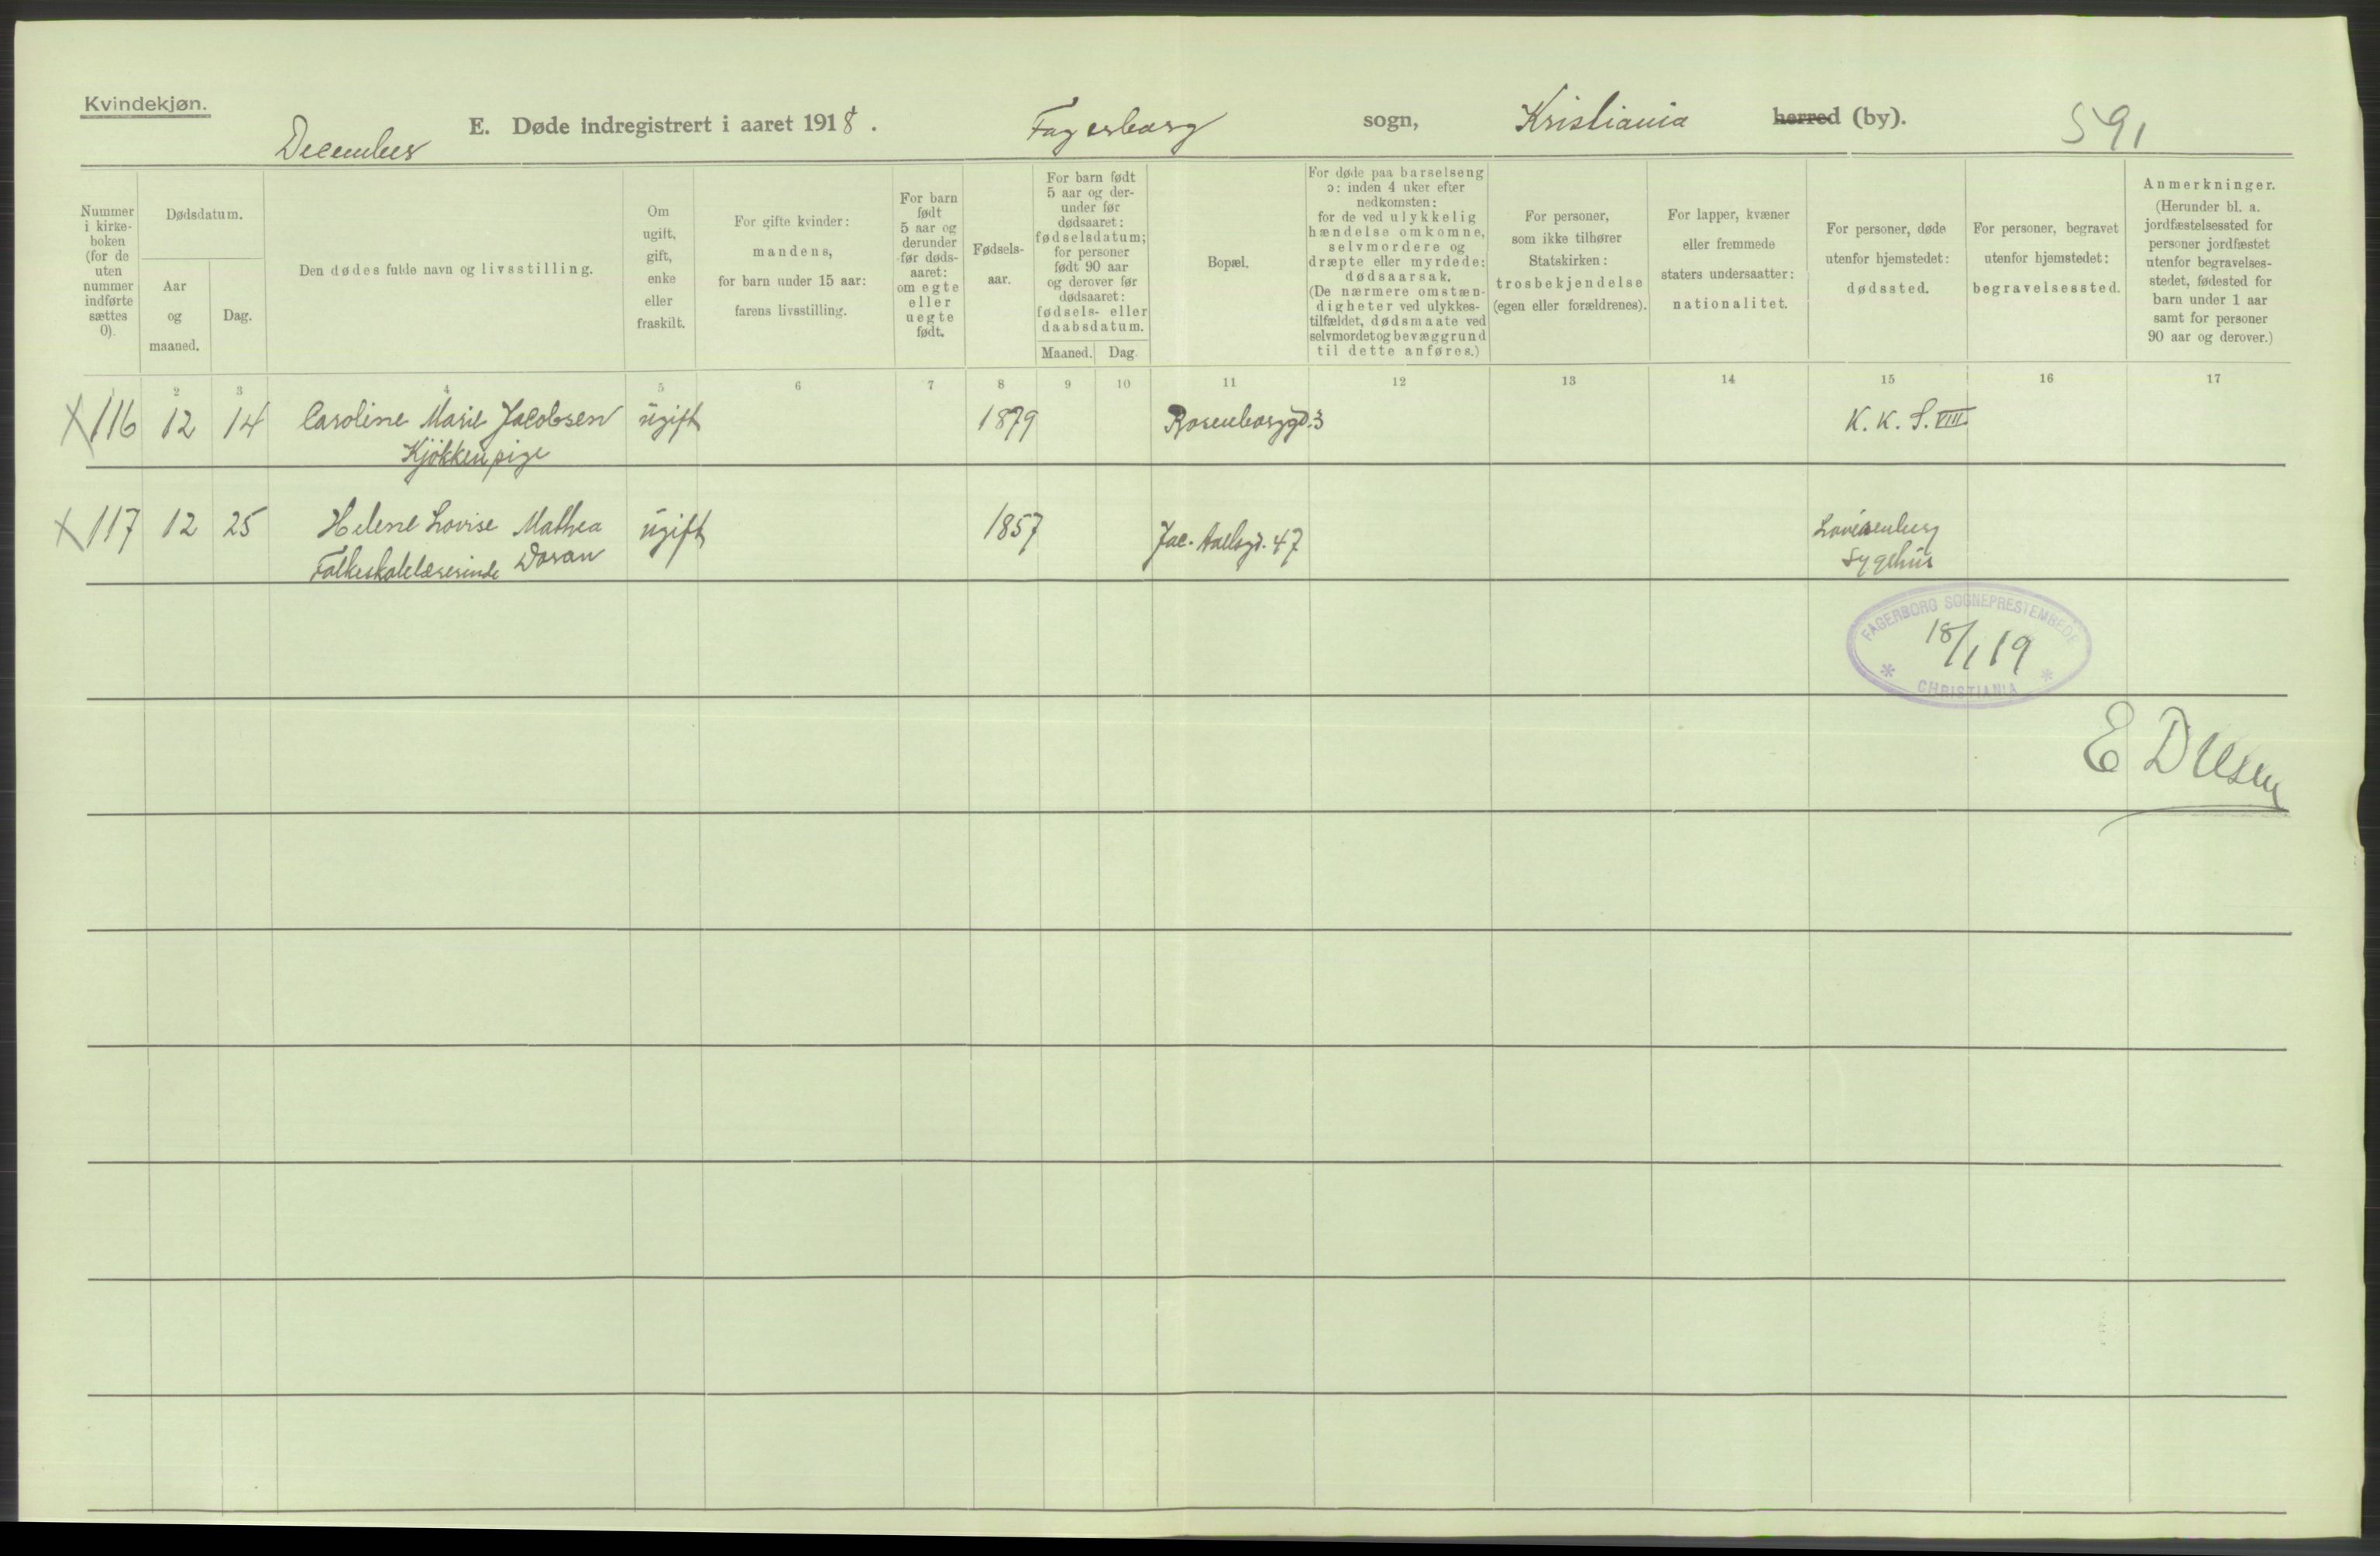 Kvindekjøn.
December
E. Døde indregistrert i aaret 1918.
Fagerborg sogn, Kristiania herred (by).
591
Nummer
i kirke-
boken
(for de
uten
nummer
indførte
sættes
0).
Dødsdatum.
Aar
og
maaned.
Dag.
Den dødes fulde navn og livsstilling.
Om
ugift,
gift,
enke
eller
fraskilt.
For gifte kvinder:
mandens,
for barn under 15 aar:
farens livsstilling.
For barn
født
5 aar og
derunder
før døds-
aaret:
om egte
eller
uegte
født.
Fødsels-
aar.
For barn født
5 aar og der-
under før
dødsaaret:
fødselsdatum;
for personer
født 90 aar
og derover før
dødsaaret:
fødsels- eller
daabsdatum.
Maaned. Dag.
Bopæl.
For døde paa barselseng
ɔ: inden 4 uker efter
nedkomsten:
for de ved ulykkelig
hændelse omkomne,
selvmordere og
dræpte eller myrdede:
dødsaarsak.
(De nærmere omstæn-
digheter ved ulykkes-
tilfældet, dødsmaate ved
selvmordet og bevæggrund
til dette anføres.)
For personer,
som ikke tilhører
Statskirken:
trosbekjendelse
(egen eller forældrenes).
For lapper, kvæner
eller fremmede
staters undersaatter:
nationalitet.
For personer, døde
utenfor hjemstedet:
dødssted.
For personer, begravet
utenfor hjemstedet:
begravelsessted.
Anmerkninger.
(Herunder bl. a.
jordfæstelsessted for
personer jordfæstet
utenfor begravelses-
stedet, fødested for
barn under 1 aar
samt for personer
90 aar og derover.)
2 3 4 5 6 7 8 9 10 11 12 13 14 15 16 17
X 116 12 14 Caroline Marie Jacobsen ugift 1879 Rosenborggd. 3 K. K. S. VIII.
Kjökkenpige
X 117 12 25 Helene Lovise Mathea ugift 1857 Jac. Aallsgd. 47 Lovisenberg
Folkeskolelærerinde Doran Sygehus
FAGERBORG SOGNEPRESTEMBEDE
18/1 19
* CHRISTIANIA *